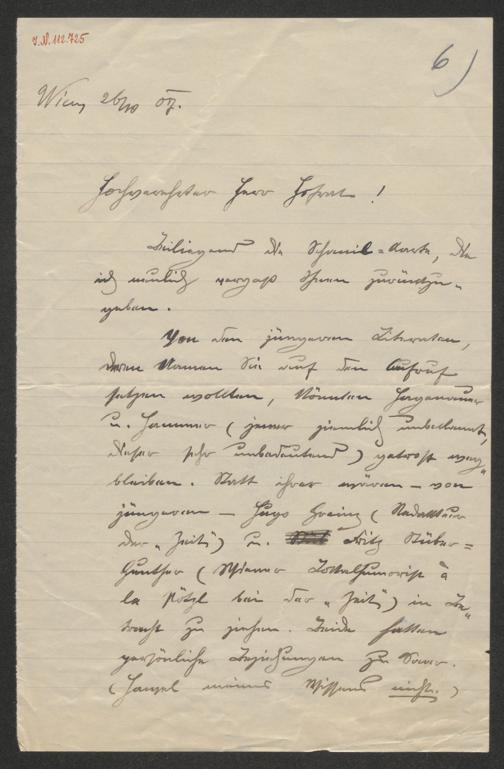 J.N. 112.725
6)
Wien, 26/10 07.
Hochverehrter Herr Hofrat!
Beiliegend die Schmid=Karte, die
ich neulich vergaß Ihnen zurückzu„
geben.
Von den jüngeren Literaten,
deren Namen Sie auf den Aufruf
setzen wollten, könnten Hagenauer
u. Hammer (jener ziemlich unbekannt,
dieser sehr unbedeutend) getrost weg„
bleiben. Statt ihrer wären – von
jüngeren – Hugo Greinz (Redakteur
der „Zeit") u. Fritz Stüber=
Gunther (Wiener Lokalhumorist à
la Pötzl bei der „Zeit") in Be„
tracht zu ziehen. Beide hatten
persönliche Beziehungen zu Saar.
(Hagel meines Wissens nicht.)